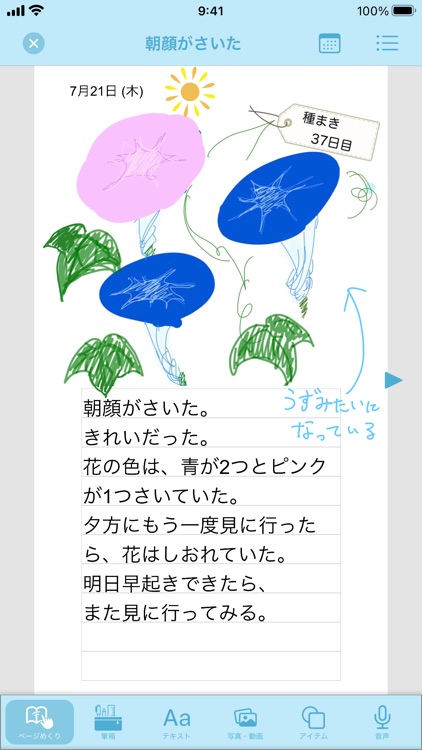 9:41
100%
朝顔がさいた
7月21日 (木)
種まき
37日目
うずみたいに
なっている
朝顔がさいた。
きれいだった。
花の色は、青が2つとピンク
が1つさいていた。
夕方にもう一度見に行った
ら、花はしおれていた。
明日早起きできたら、
また見に行ってみる。
ページめくり
筆箱
Aa
テキスト
写真・動画
アイテム
音声